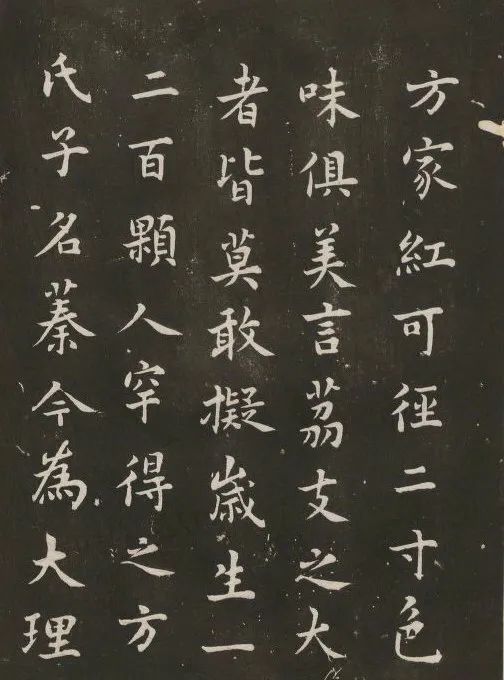 方家紅可徑二寸色
味俱美言茘支之大
者皆莫敢擬歲生一
二百顆人罕得之方
氏子名蓁今為大理